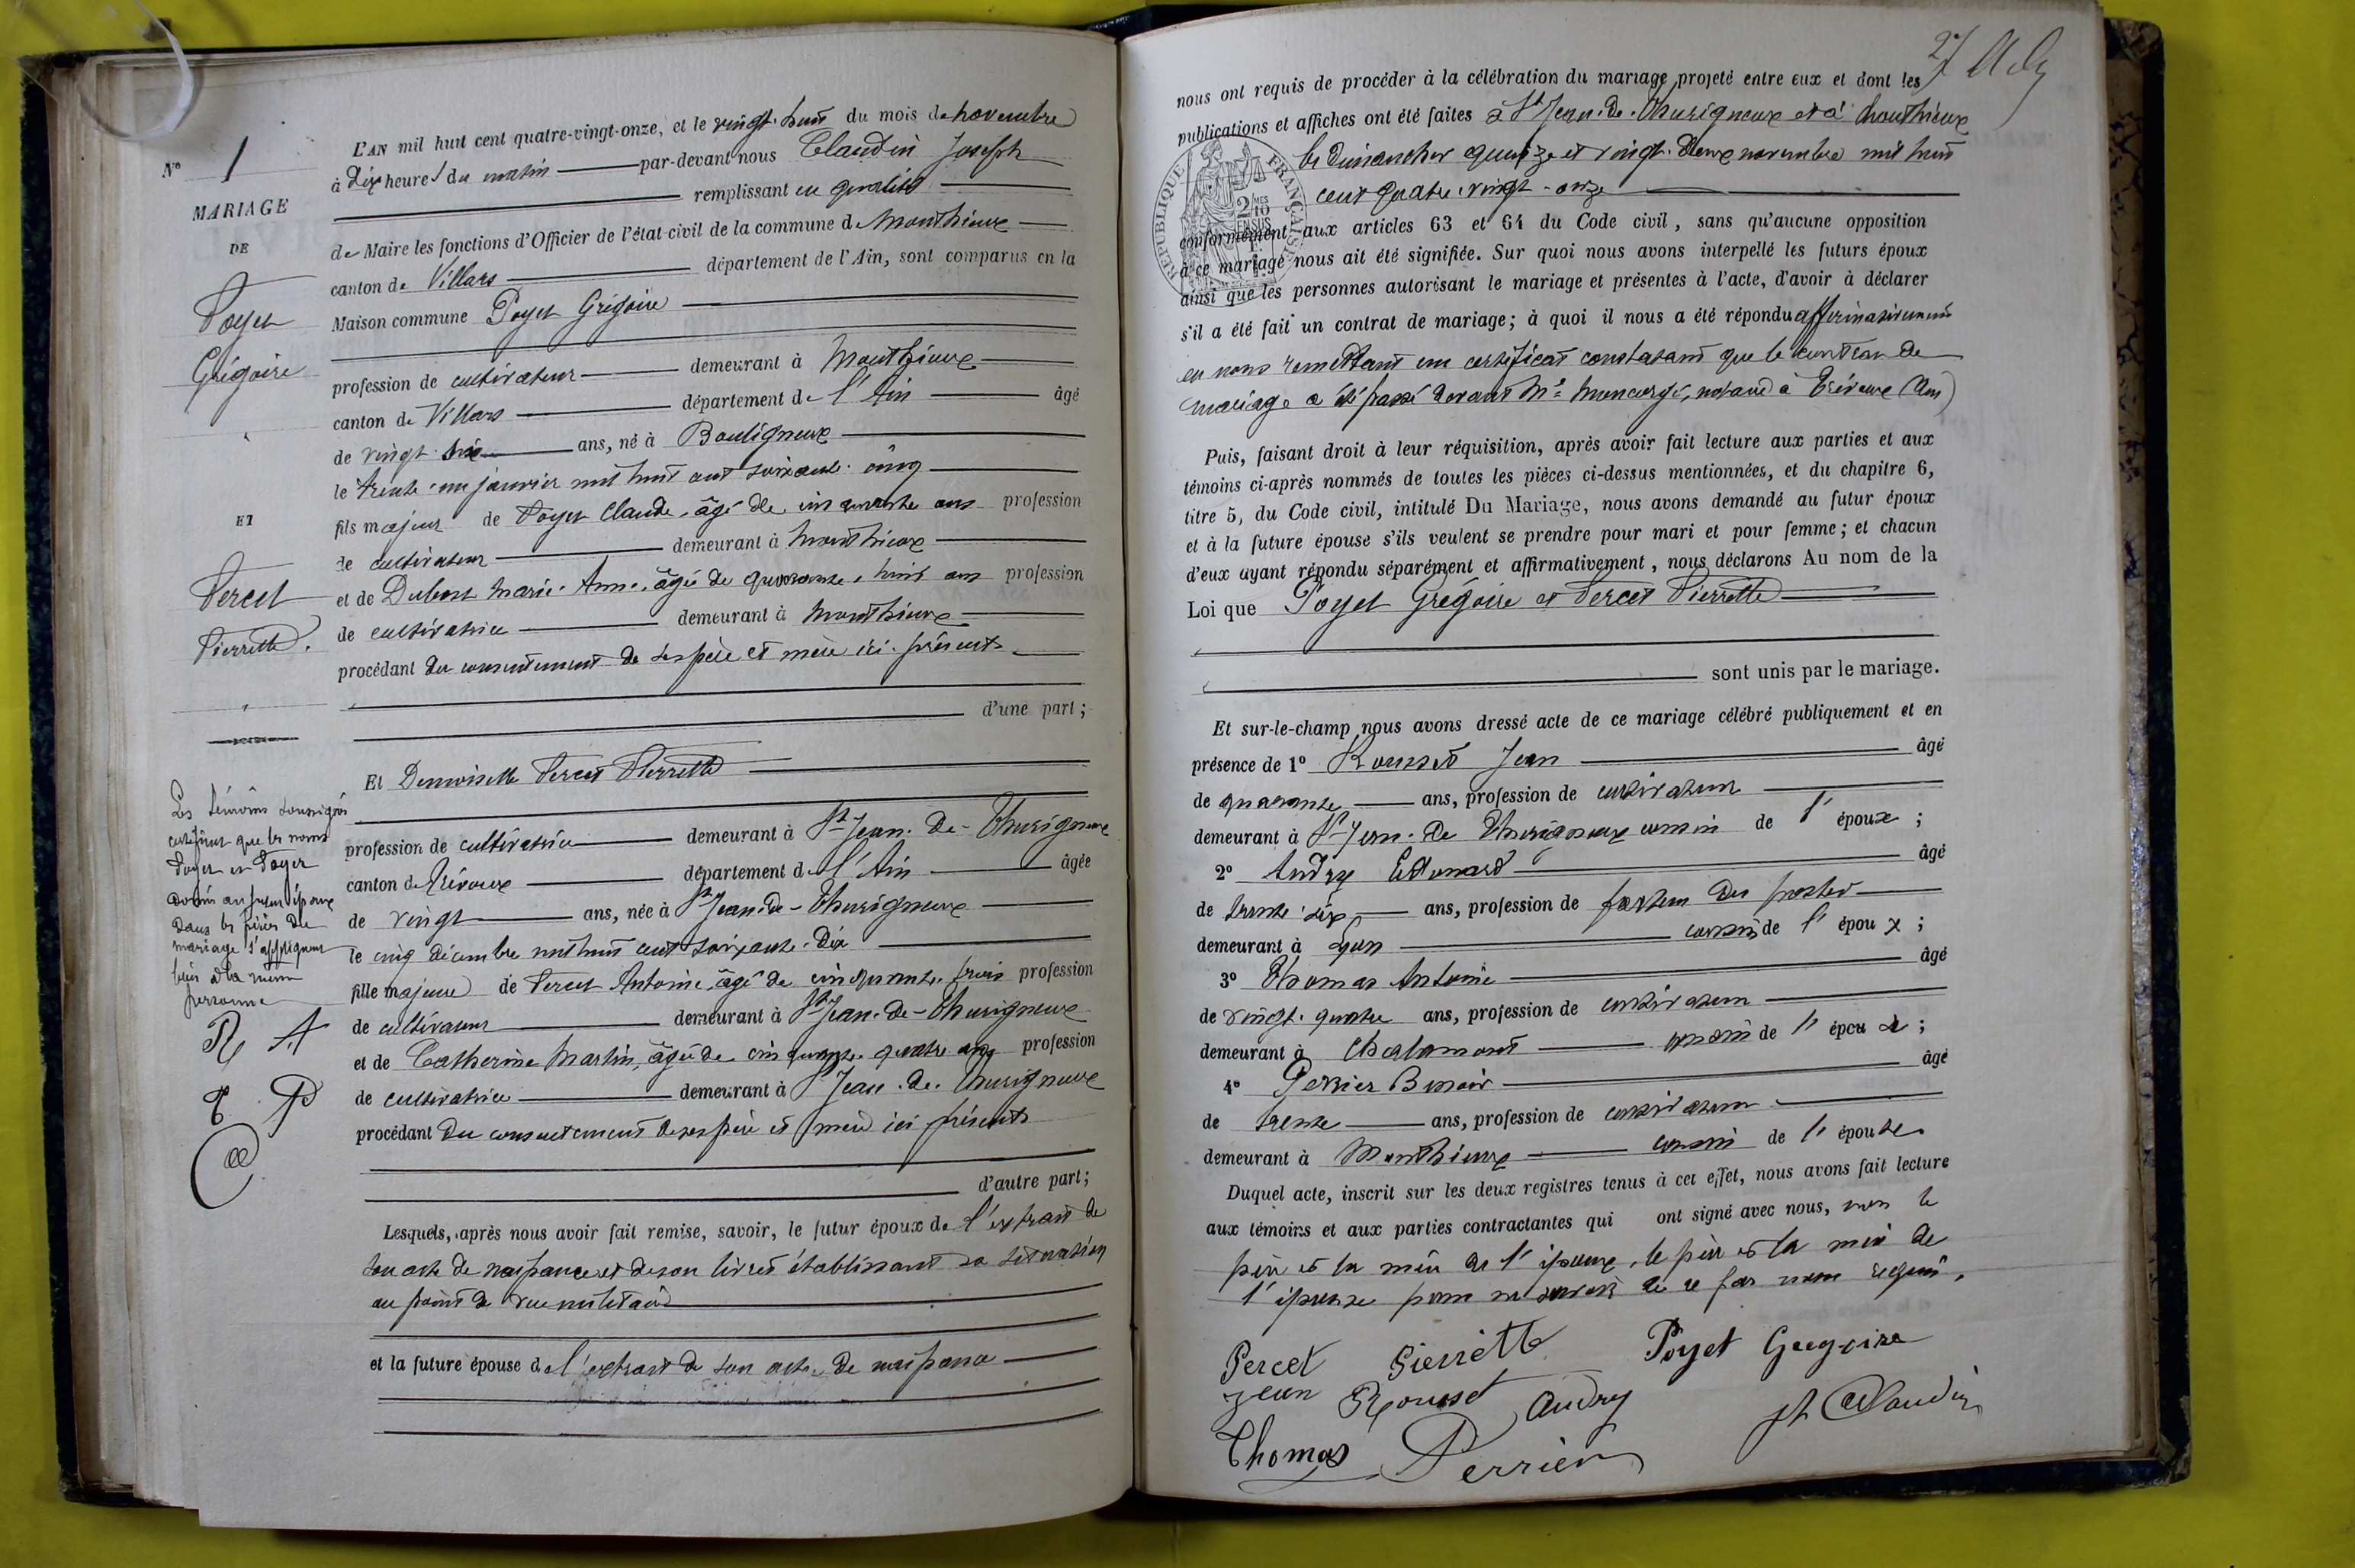 N° 1
MARIAGE
DE
Poyet
Grégoire
ET
Percet
Pierrette.
Les témoins soussignés
certifient que les noms
Poyet et Poyer
donnés au futur époux
dans les pièces de
mariage s'appliquent
bien à la même
personne
R A
T P
L'AN mil huit cent quatre-vingt-onze, et le vingt-huit du mois de novembre
à dix heures du matin par-devant nous Claudin Joseph
remplissant en qualité
de Maire les fonctions d'Officier de l'état-civil de la commune de Monthieux
canton de Villars département de l'Ain, sont comparus en la
Maison commune Poyet Grégoire
profession de cultivateur demeurant à Monthieux
canton de Villars département de l'Ain âgé
de vingt-six ans, né à Bouligneux
le trente-un janvier mil huit cent soixante-cinq
fils majeur de Poyet Claude, âgé de cinquante ans profession
de cultivateur demeurant à Monthieux
et de Dubost Marie-Anne, âgée de quarante-huit ans profession
de cultivatrice demeurant à Monthieux
procédant du consentement de ses père et mère ici présents
d'une part;
Et Demoiselle Percet Pierrette
profession de cultivatrice demeurant à St-Jean-de-Thurigneux
canton de Trévoux département de l'Ain âgée
de vingt ans, née à St-Jean-de-Thurigneux
le cinq décembre mil huit cent soixante-dix
fille majeure de Percet Antoine, âgé de cinquante-trois profession
de cultivateur demeurant à St-Jean-de-Thurigneux
et de Catherine Martin, âgée de cinquante-quatre ans profession
de cultivatrice demeurant à St Jean-de-Thurigneux
procédant du consentement de ses père et mère ici présents
d'autre part;
Lesquels, après nous avoir fait remise, savoir, le futur époux de l'extrait de
son acte de naissance et de son livret établissant sa situation
au point de vue militaire
et la future épouse de l'extrait de son acte de naissance
27
nous ont requis de procéder à la célébration du mariage projeté entre eux et dont les
publications et affiches ont été faites à St Jean-de-Thurigneux et à Monthieux
les dimanches quinze et vingt-deux novembre mil huit
cent quatre-vingt-onze
RÉPUBLIQUE FRANÇAISE
2/10 EN SUS
conformément aux articles 63 et 64 du Code civil, sans qu'aucune opposition
à ce mariage nous ait été signifiée. Sur quoi nous avons interpellé les futurs époux
ainsi que les personnes autorisant le mariage et présentes à l'acte, d'avoir à déclarer
s'il a été fait un contrat de mariage; à quoi il nous a été répondu affirmativement
en nous remettant un certificat constatant que le contrat de
mariage a été passé devant Me notaire à Trévoux (Ain)
Puis, faisant droit à leur réquisition, après avoir fait lecture aux parties et aux
témoins ci-après nommés de toutes les pièces ci-dessus mentionnées, et du chapitre 6,
titre 5, du Code civil, intitulé Du Mariage, nous avons demandé au futur époux
et à la future épouse s'ils veulent se prendre pour mari et pour femme; et chacun
d'eux ayant répondu séparément et affirmativement, nous déclarons Au nom de la
Loi que Poyet Grégoire et Percet Pierrette
sont unis par le mariage.
Et sur-le-champ nous avons dressé acte de ce mariage célébré publiquement et en
présence de 1° Rousset Jean âgé
de quarante ans, profession de cultivateur
demeurant à St-Jean-de-Thurigneux cousin de l'époux;
2° Audry Edouard âgé
de trente-six ans, profession de facteur des postes
demeurant à Lyon cousin de l'époux;
3° Thomas Antoine âgé
de vingt-quatre ans, profession de cultivateur
demeurant à Chalamont cousin de l'épouse;
4° Perrier Benoît âgé
de trente ans, profession de cultivateur
demeurant à Monthieux cousin de l'épouse.
Duquel acte, inscrit sur les deux registres tenus à cet effet, nous avons fait lecture
aux témoins et aux parties contractantes qui ont signé avec nous, non le
père et la mère de l'époux, le père et la mère de
l'épouse pour ne savoir de ce fait requis.
Percet Pierrette Poyet Gregoire
Jean Rousset Audry Jh Claudin
Thomas Perrier